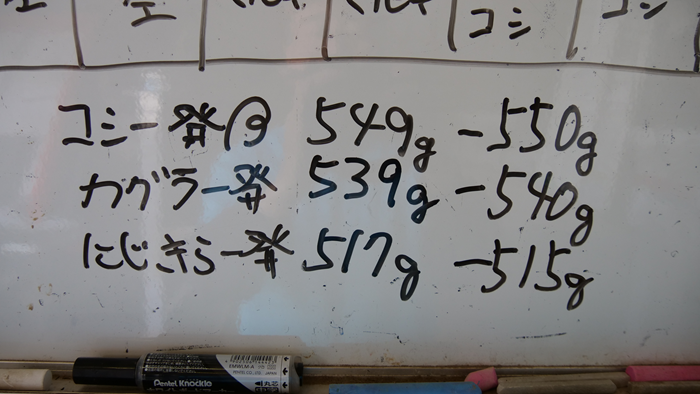 コシ コシ
コシ一発目 549g -550g
カグラ一発 539g -540g
にじきら一発 517g -515g
Pentel Knockle
EMWLM-A